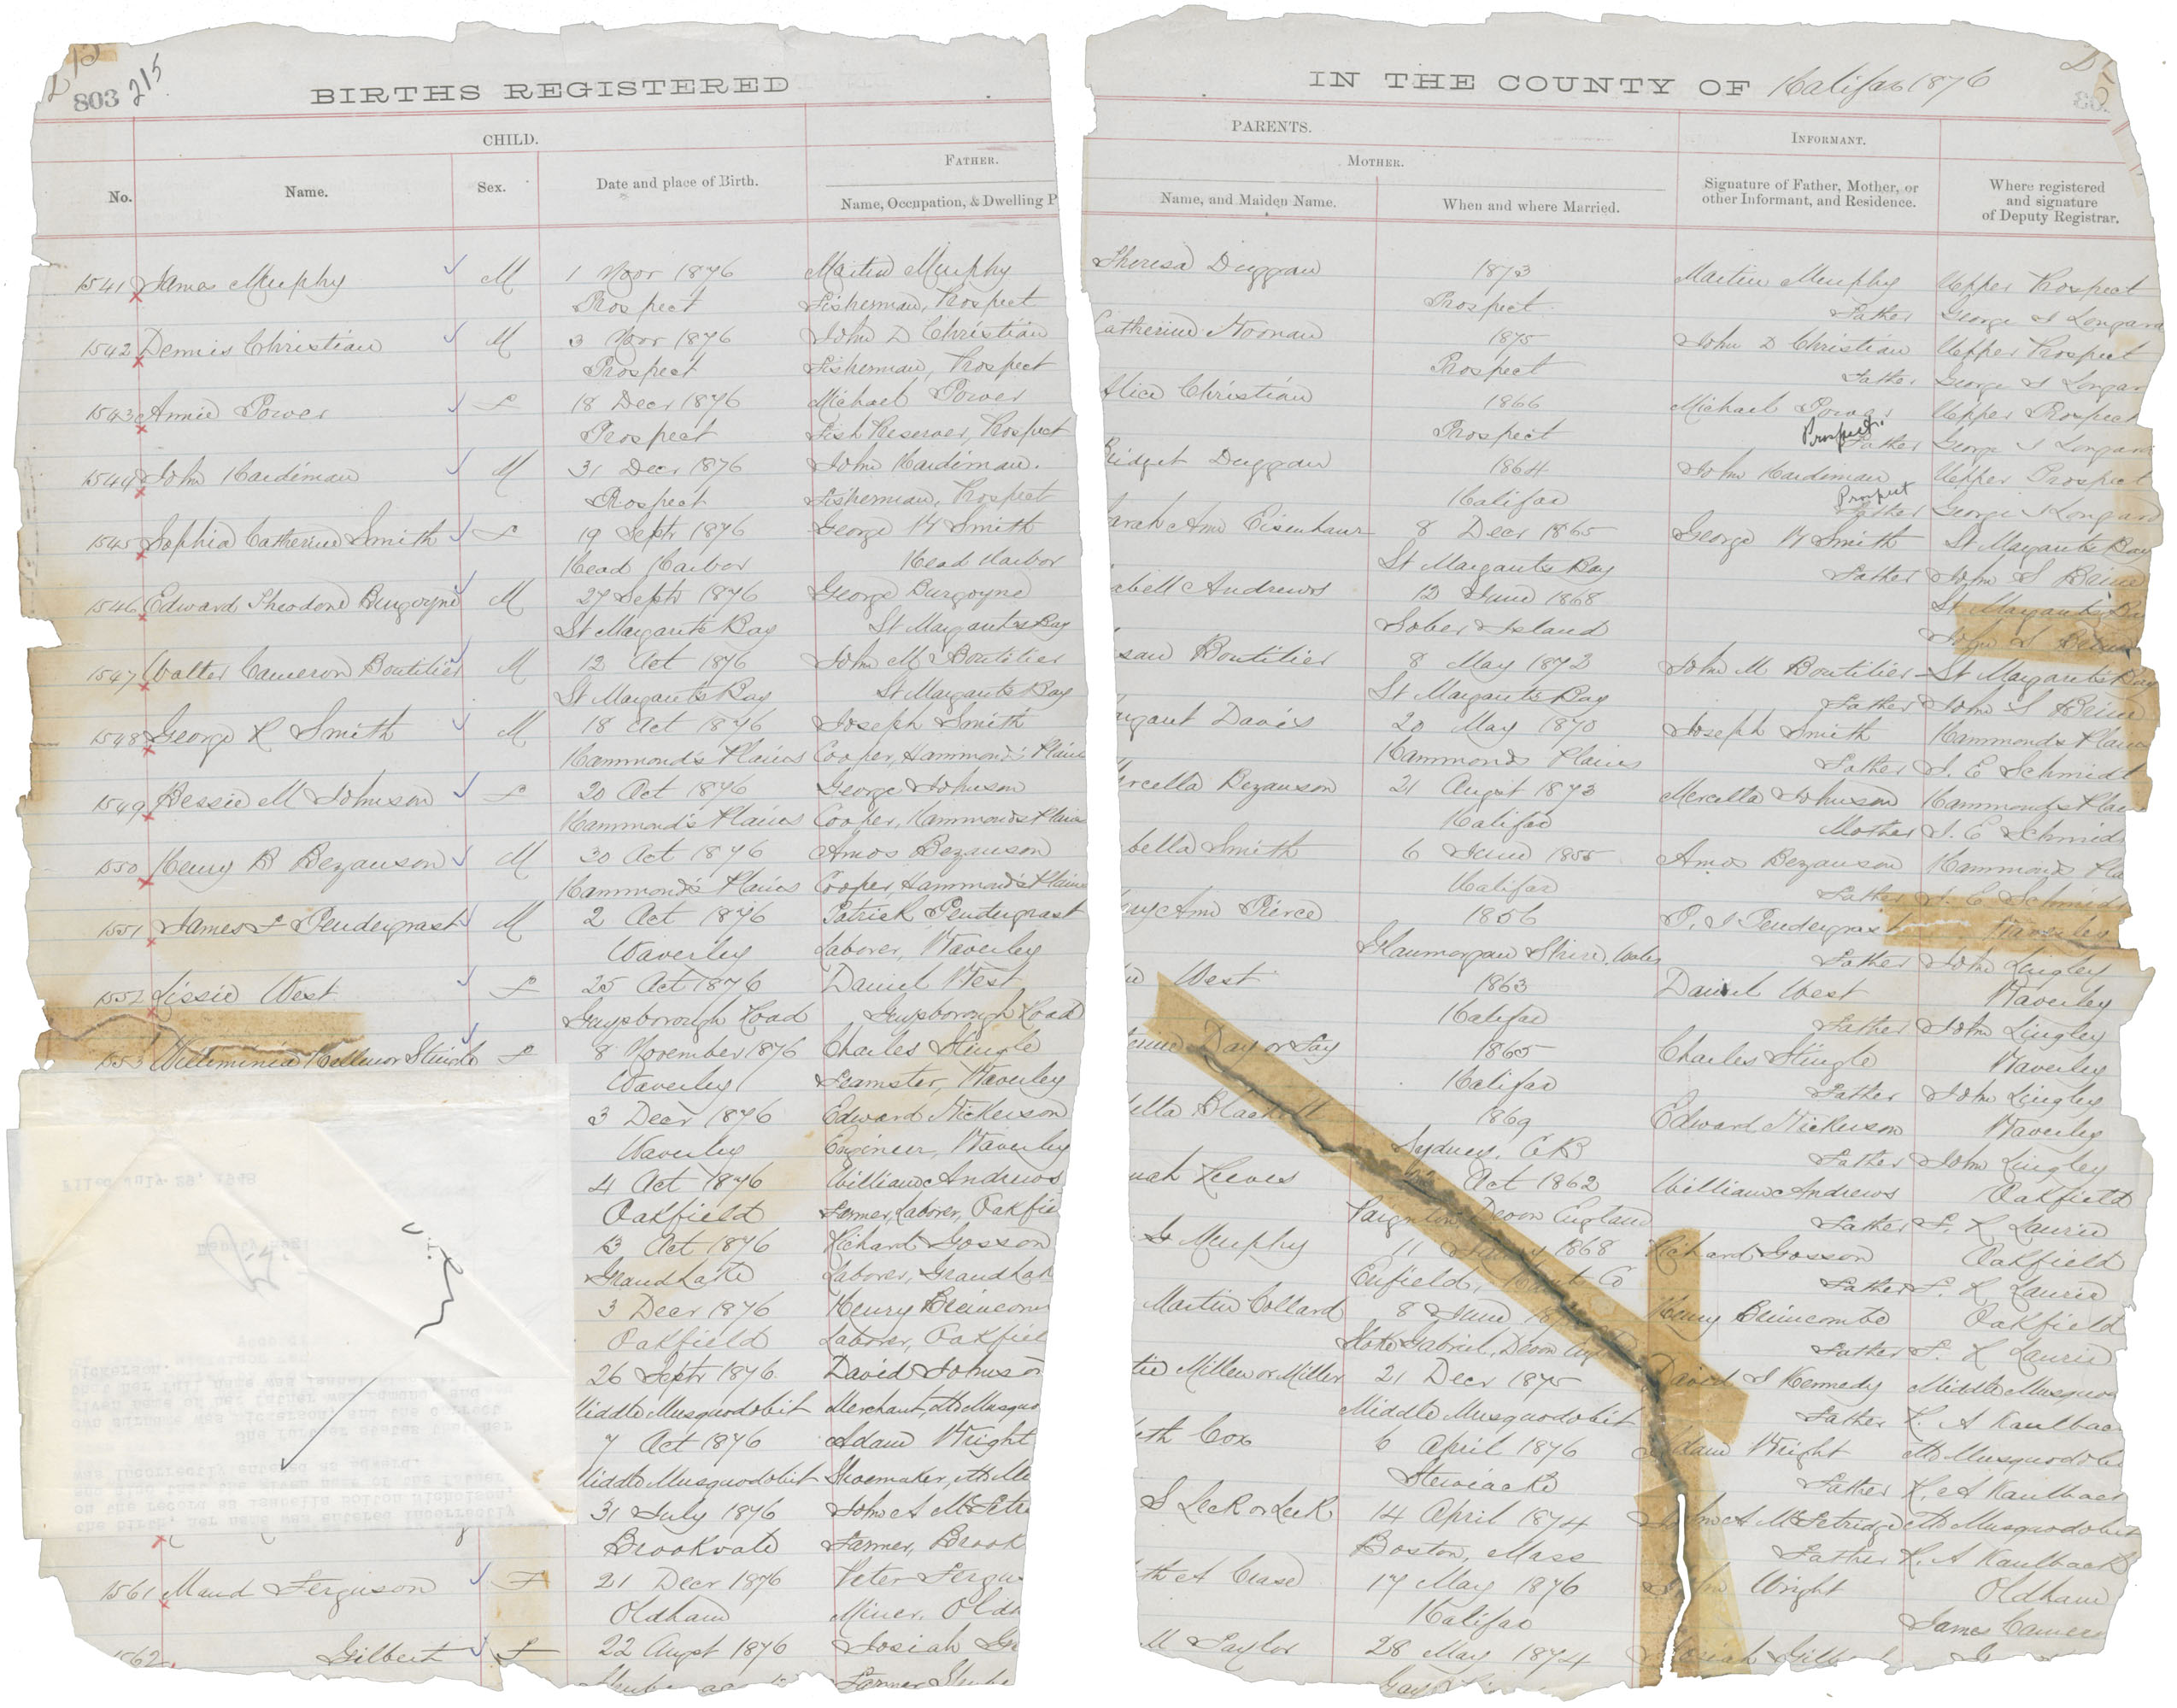 803 215
BIRTHS REGISTERED
CHILD.
FATHER.
No. Name. Sex. Date and place of Birth. Name, Occupation, & Dwelling P
1541 James Murphy M 1 Novr 1876 Martin Murphy
Prospect Fisherman, Prospect
1542 Dennis Christian M 3 Novr 1876 John D Christian
Prospect Fisherman, Prospect
1543 Annie Power F 18 Decr 1876 Michael Power
Prospect Fish Preserver, Prospect
1544 John Hardiman M 31 Decr 1876 John Hardiman.
Prospect Fisherman, Prospect
1545 Sophia Catherine Smith F 19 Septr 1876 George W Smith
Head Harbor Head Harbor
1546 Edward Theodore Burgoyne M 27 Septr 1876 George Burgoyne
St Margarets Bay St Margarets Bay
1547 Walter Cameron Boutilier M 12 Oct 1876 John M Boutilier
St Margarets Bay St Margarets Bay
1548 George R Smith M 18 Oct 1876 Joseph Smith
Hammond's Plains Cooper, Hammonds Plains
1549 Bessie M Johnson F 20 Oct 1876 George Johnson
Hammond's Plains Cooper, Hammonds Plains
1550 Henry B Bezanson M 30 Oct 1876 Amos Bezanson
Hammond's Plains Cooper Hammond's Plains
1551 James F Pendergrast M 2 Oct 1876 Patrick Pendergrast
Waverley Laborer, Waverley
1552 Lissie West F 25 Oct 1876 Daniel West
Guysborough Road Guysborough Road
1553 Wileminia Stingle F 8 November 1876 Charles Stingle
Waverley Teamster, Waverley
3 Decr 1876 Edward Nickerson
Waverley Engineer, Waverley
4 Oct 1876 William Andrews
Oakfield Farmer, Laborer, Oakfie
13 Oct 1876 Richard Gosson
Grand Lake Laborer, Grand Lak
3 Decr 1876 Henry Brincom
Oakfield Laborer, Oakfiel
26 Septr 1876 David Johnson
Middle Musquodobit Merchant, Md Musquo
7 Oct 1876 Adam Wright
Middle Musquodobit Shoemaker, Md Mu
31 July 1876 John A McFetri
Brookvale Farmer, Brook
1561 Maud Ferguson F 21 Decr 1876 Peter Fergu
Oldham Miner, Oldh
1562 Gilbert F 22 Augst 1876 Josiah Gi
Farmer
IN THE COUNTY OF Halifax 1876
PARENTS.
INFORMANT.
MOTHER.
Name, and Maiden Name. When and where Married. Signature of Father, Mother, or other Informant, and Residence. Where registered and signature of Deputy Registrar.
Theresa Duggan 1873 Martin Murphy Upper Prospect
Prospect Father George I Longard
Catherine Noonan 1875 John D Christian Upper Prospect
Prospect Father George I Longar
Alice Christian 1866 Michael Power Upper Prospect
Prospect Prospect. Father George I Longard
Bridget Duggan 1864 John Hardiman Upper Prospect
Halifax Prospect Father George I Longard
Sarah Ann Eisenhaur 8 Decr 1865 George W Smith St Margarets Bay
St Margarets Bay Father John S Brine
abell Andrews 12 June 1868 St Margarets Ba
Sober Island John S Brine
usan Boutilier 8 May 1872 John M Boutilier St Margarets Bay
St Margarets Bay Father John S Brine
argaret Davis 20 May 1870 Joseph Smith Hammonds Plains
Hammonds Plains Father J. E Schmidt
ercella Bezanson 21 August 1873 Mercella Johnson Hammonds Plai
Halifax Mother J. E Schmid
bella Smith 6 June 1855 Amos Bezanson Hammonds Pla
Halifax Father J. E Schmid
ary Ann Pierce 1856 P. J Pendergrast Waverley
Glaumorgan Shire, Wales Father John Lingley
West 1863 Daniel West Waverley
Halifax Father John Lingley
Day or Fay 1865 Charles Stingle Waverley
Halifax Father John Lingley
ella Black 1869 Edward Nickerson Waverley
Sydney. C.B Father John Lingley
nah Reeves Oct 1862 William Andrews Oakfield
Paignton, Devon England Father F. R Laurie
G Murphy 11 1868 Richard Gosson Oakfield
Enfield, Hants Co Father F. R Laurie
Martin Collard 8 June 18 Henry Brincombe Oakfield
Stoke Gabriel, Devon Father F. R Laurie
tie Millen or Miller 21 Decr 1875 David J Kennedy Middle Musquo
Middle Musquodobit Father R. A Kaulbac
eth Cox 6 April 1876 Adam Wright Md Musquodobi
Stewiacke Father R. A Kaulbac
S Leck or Leek 14 April 1874 John A McFetridge Md Musquodobit
Boston, Mass Father R. A Kaulback
th A Crase 17 May 1876 John Wright Oldham
Halifax James Camer
M Taylor 28 May 1874 Josiah Gilb